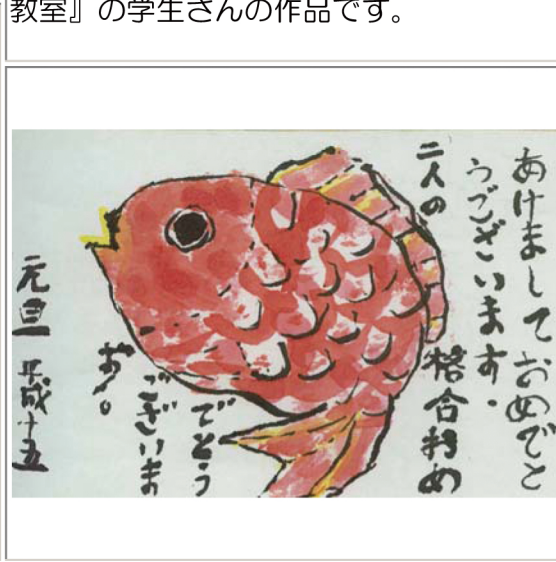 教室』の学生さんの作品です。
あけましておめでと
うございます。
二人の
格合おめ
でとう
ございま
す。
元旦 平成十五